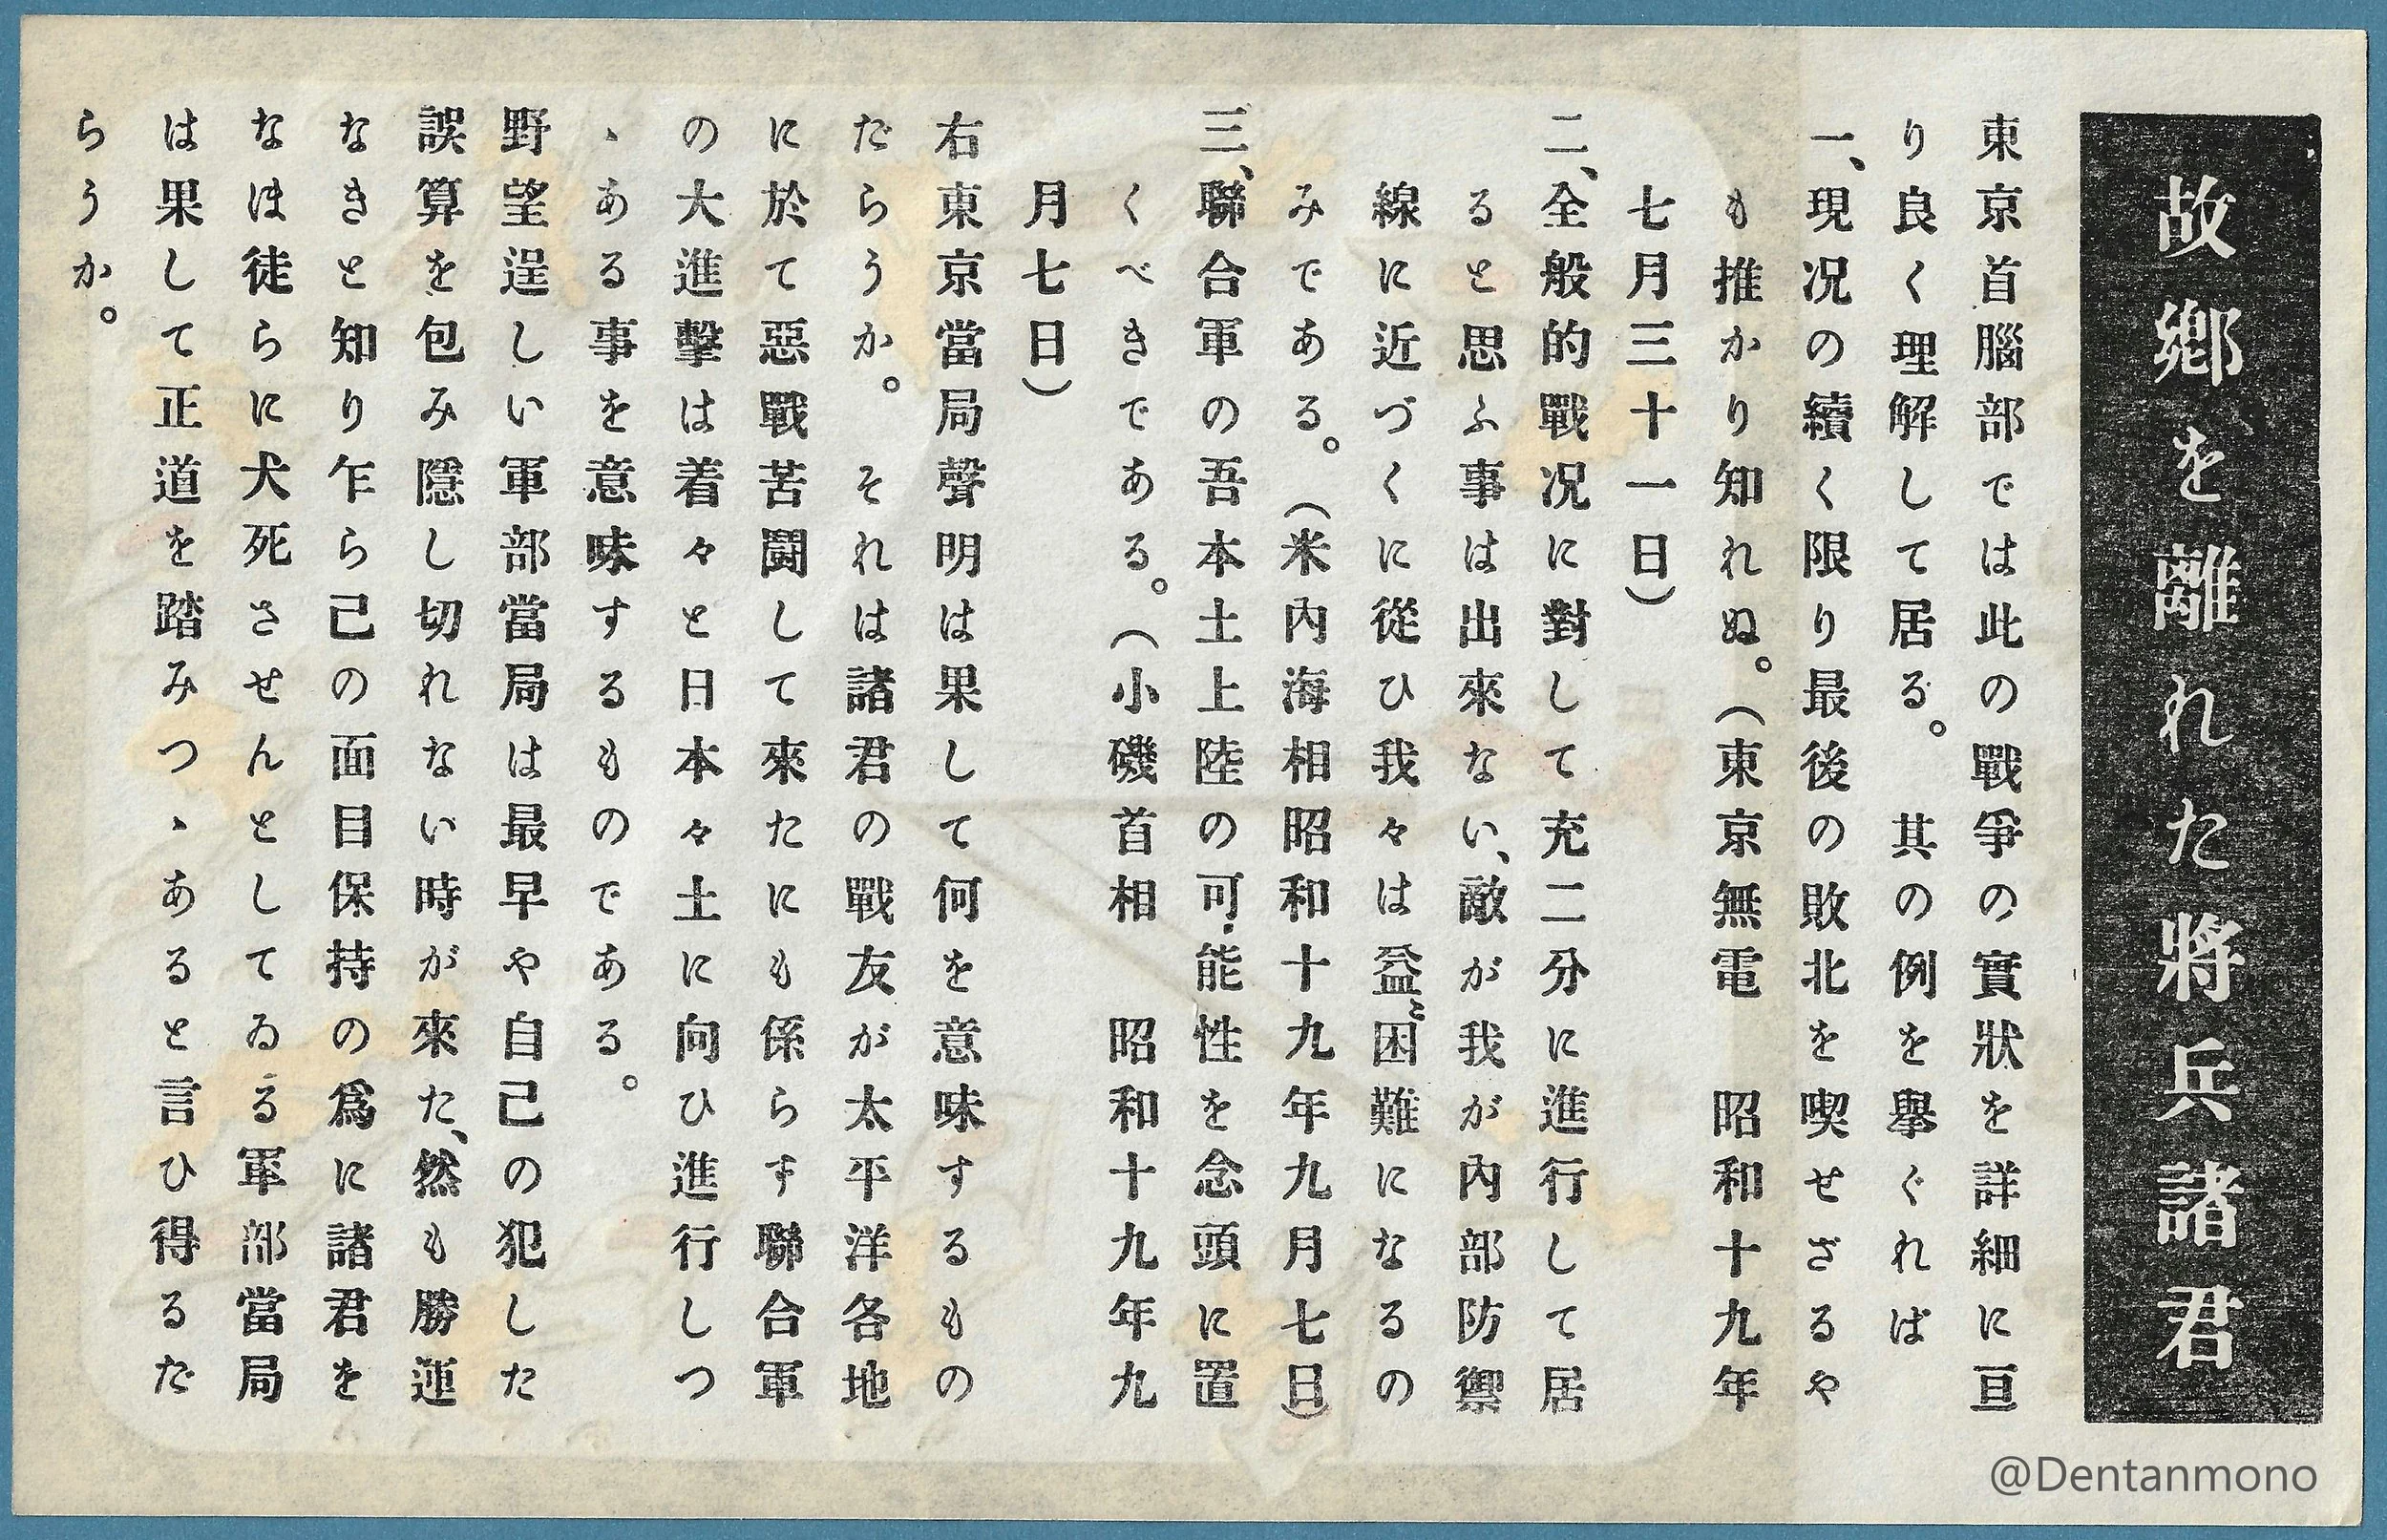 故鄕を離れた將兵諸君
東京首腦部では此の戰爭の實狀を詳細に亘
り良く理解して居る。　其の例を擧ぐれば
一、現況の續く限り最後の敗北を喫せざるや
も推かり知れぬ。（東京無電　昭和十九年
七月三十一日）
二、全般的戰況に對して充二分に進行して居
ると思ふ事は出來ない、敵が我が內部防禦
線に近づくに從ひ我々は益〻困難になるの
みである。（米內海相昭和十九年九月七日）
三、聯合軍の吾本土上陸の可能性を念頭に置
くべきである。（小磯首相　昭和十九年九
月七日）
右東京當局聲明は果して何を意味するもの
だらうか。　それは諸君の戰友が太平洋各地
に於て惡戰苦鬪して來たにも係らず聯合軍
の大進擊は着々と日本々土に向ひ進行しつ
ゝある事を意味するものである。
野望逞しい軍部當局は最早や自己の犯した
誤算を包み隱し切れない時が來た、然も勝運
なきと知り乍ら己の面目保持の爲に諸君を
なほ徒らに犬死させんとしてゐる軍部當局
は果して正道を踏みつゝあると言ひ得るだ
らうか。
@Dentanmono